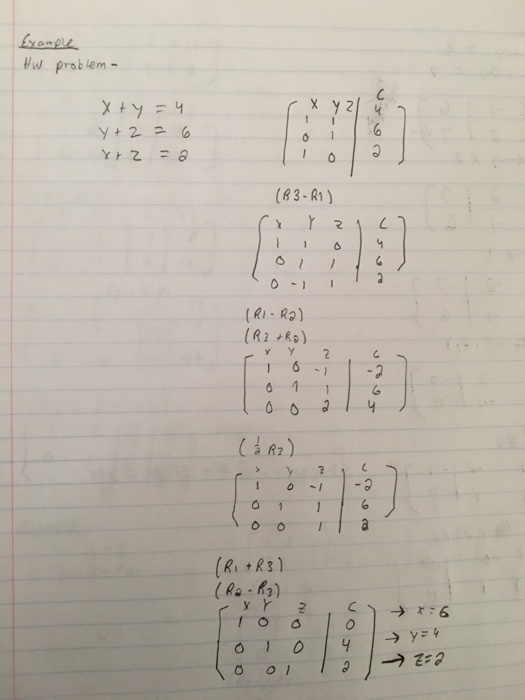 Example
HW problem -
x + y = 4
y + z = 6
x + z = 2
x y z | c
1 1 | 4
0 1 | 6
1 0 | 2
(R3 - R1)
x y z | c
1 1 0 | 4
0 1 1 | 6
0 -1 1 | 2
(R1 - R2)
(R3 + R2)
x y z | c
1 0 -1 | -2
0 1 1 | 6
0 0 2 | 4
(1/2 R3)
x y z | c
1 0 -1 | -2
0 1 1 | 6
0 0 1 | 2
(R1 + R3)
(R2 - R3)
x y z | c
1 0 0 | 0 → x = 6
0 1 0 | 4 → y = 4
0 0 1 | 2 → z = 2